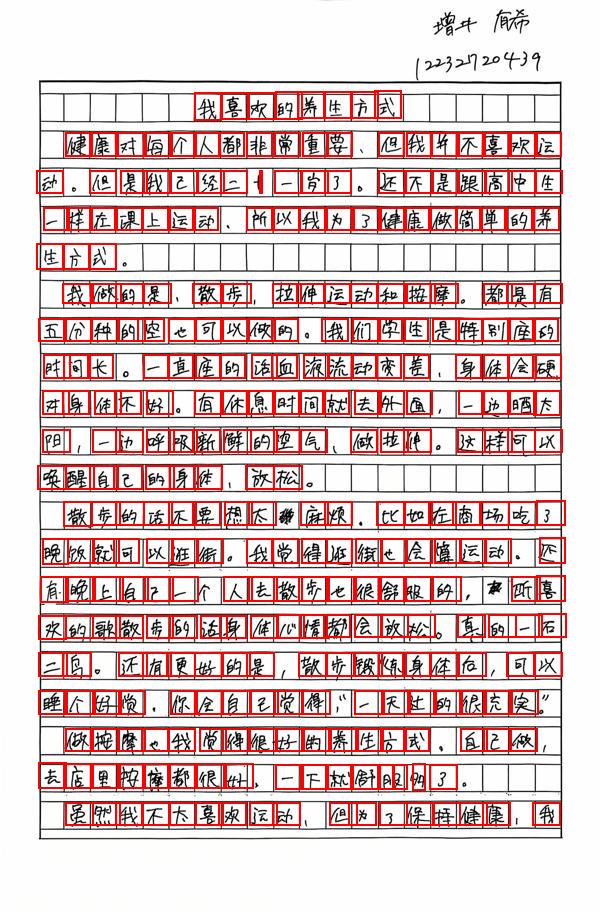 增井 有希
12232720439
我喜欢的养生方式
健康对每个人都非常重要、但我并不喜欢运
动。但是我已经二十一岁了。还不是跟高中生
一样在课上运动、所以我为了健康做简单的养
生方式。
我做的是、散步，拉伸运动和按摩。都是有
五分种的空也可以做的。我们学生是特别座的
时间长。一直座的话血液流动变差，身体会硬
对身体不好。有休息时间就去外面，一边晒太
阳，一边呼吸新鲜的空气、做拉伸。这样可以
唤醒自己的身体，放松。
散步的话不要想太麻烦。比如在商场吃了
晚饭就可以逛街。我觉得逛街也会算运动。还
有晚上自己一个人去散步也很舒服的，听喜
欢的歌散步的话身体心情都会放松。真的一石
二鸟。还有更好的是，散步锻炼身体后，可以
睡个好觉，你会自己觉得，“一天过的很充实。”
做按摩也我觉得很好的养生方式。自己做，
去店里按摩都很好，一下就舒服的了。
虽然我不太喜欢运动，但为了保持健康，我